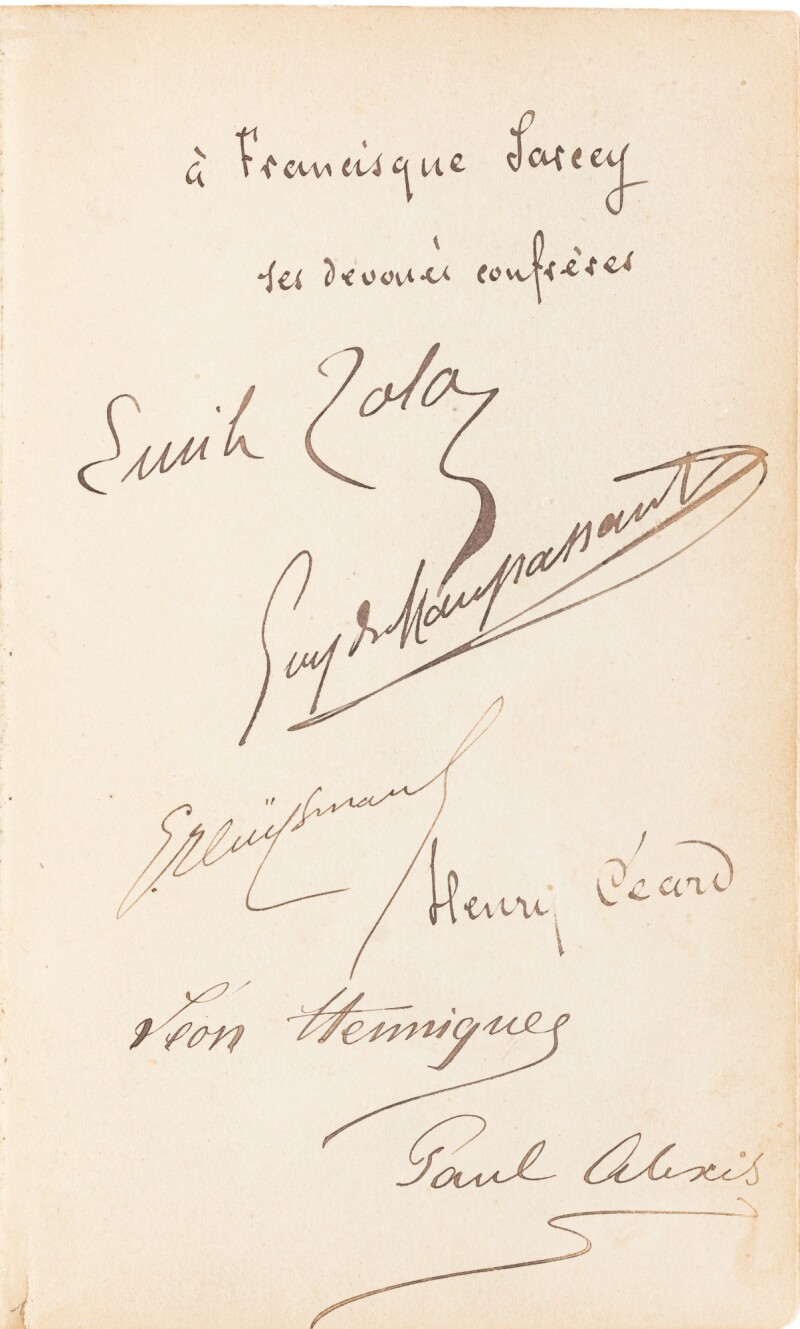 à Francisque Sarcey
ses dévoués confrères
Emile Zola
Guy de Maupassant
J K Huÿsmans
Henry Céard
Léon Hennique
Paul Alexis